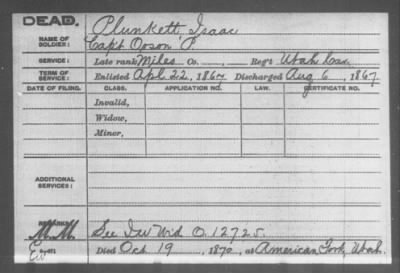 DEAD.
Plunkett, Isaac
NAME OF SOLDIER:
Capt Orson P.
SERVICE:
Late rank Miles Co. , Reg't Utah Cav.
TERM OF SERVICE:
Enlisted Apl. 22, 1867 Discharged Aug 6, 1867
DATE OF FILING. CLASS. APPLICATION NO. LAW. CERTIFICATE NO.
Invalid,
Widow,
Minor,
ADDITIONAL SERVICES:
REMARKS:
M.M. See Ind Wid O. 12725.
Died Oct 19, 1870, at American Fork, Utah.